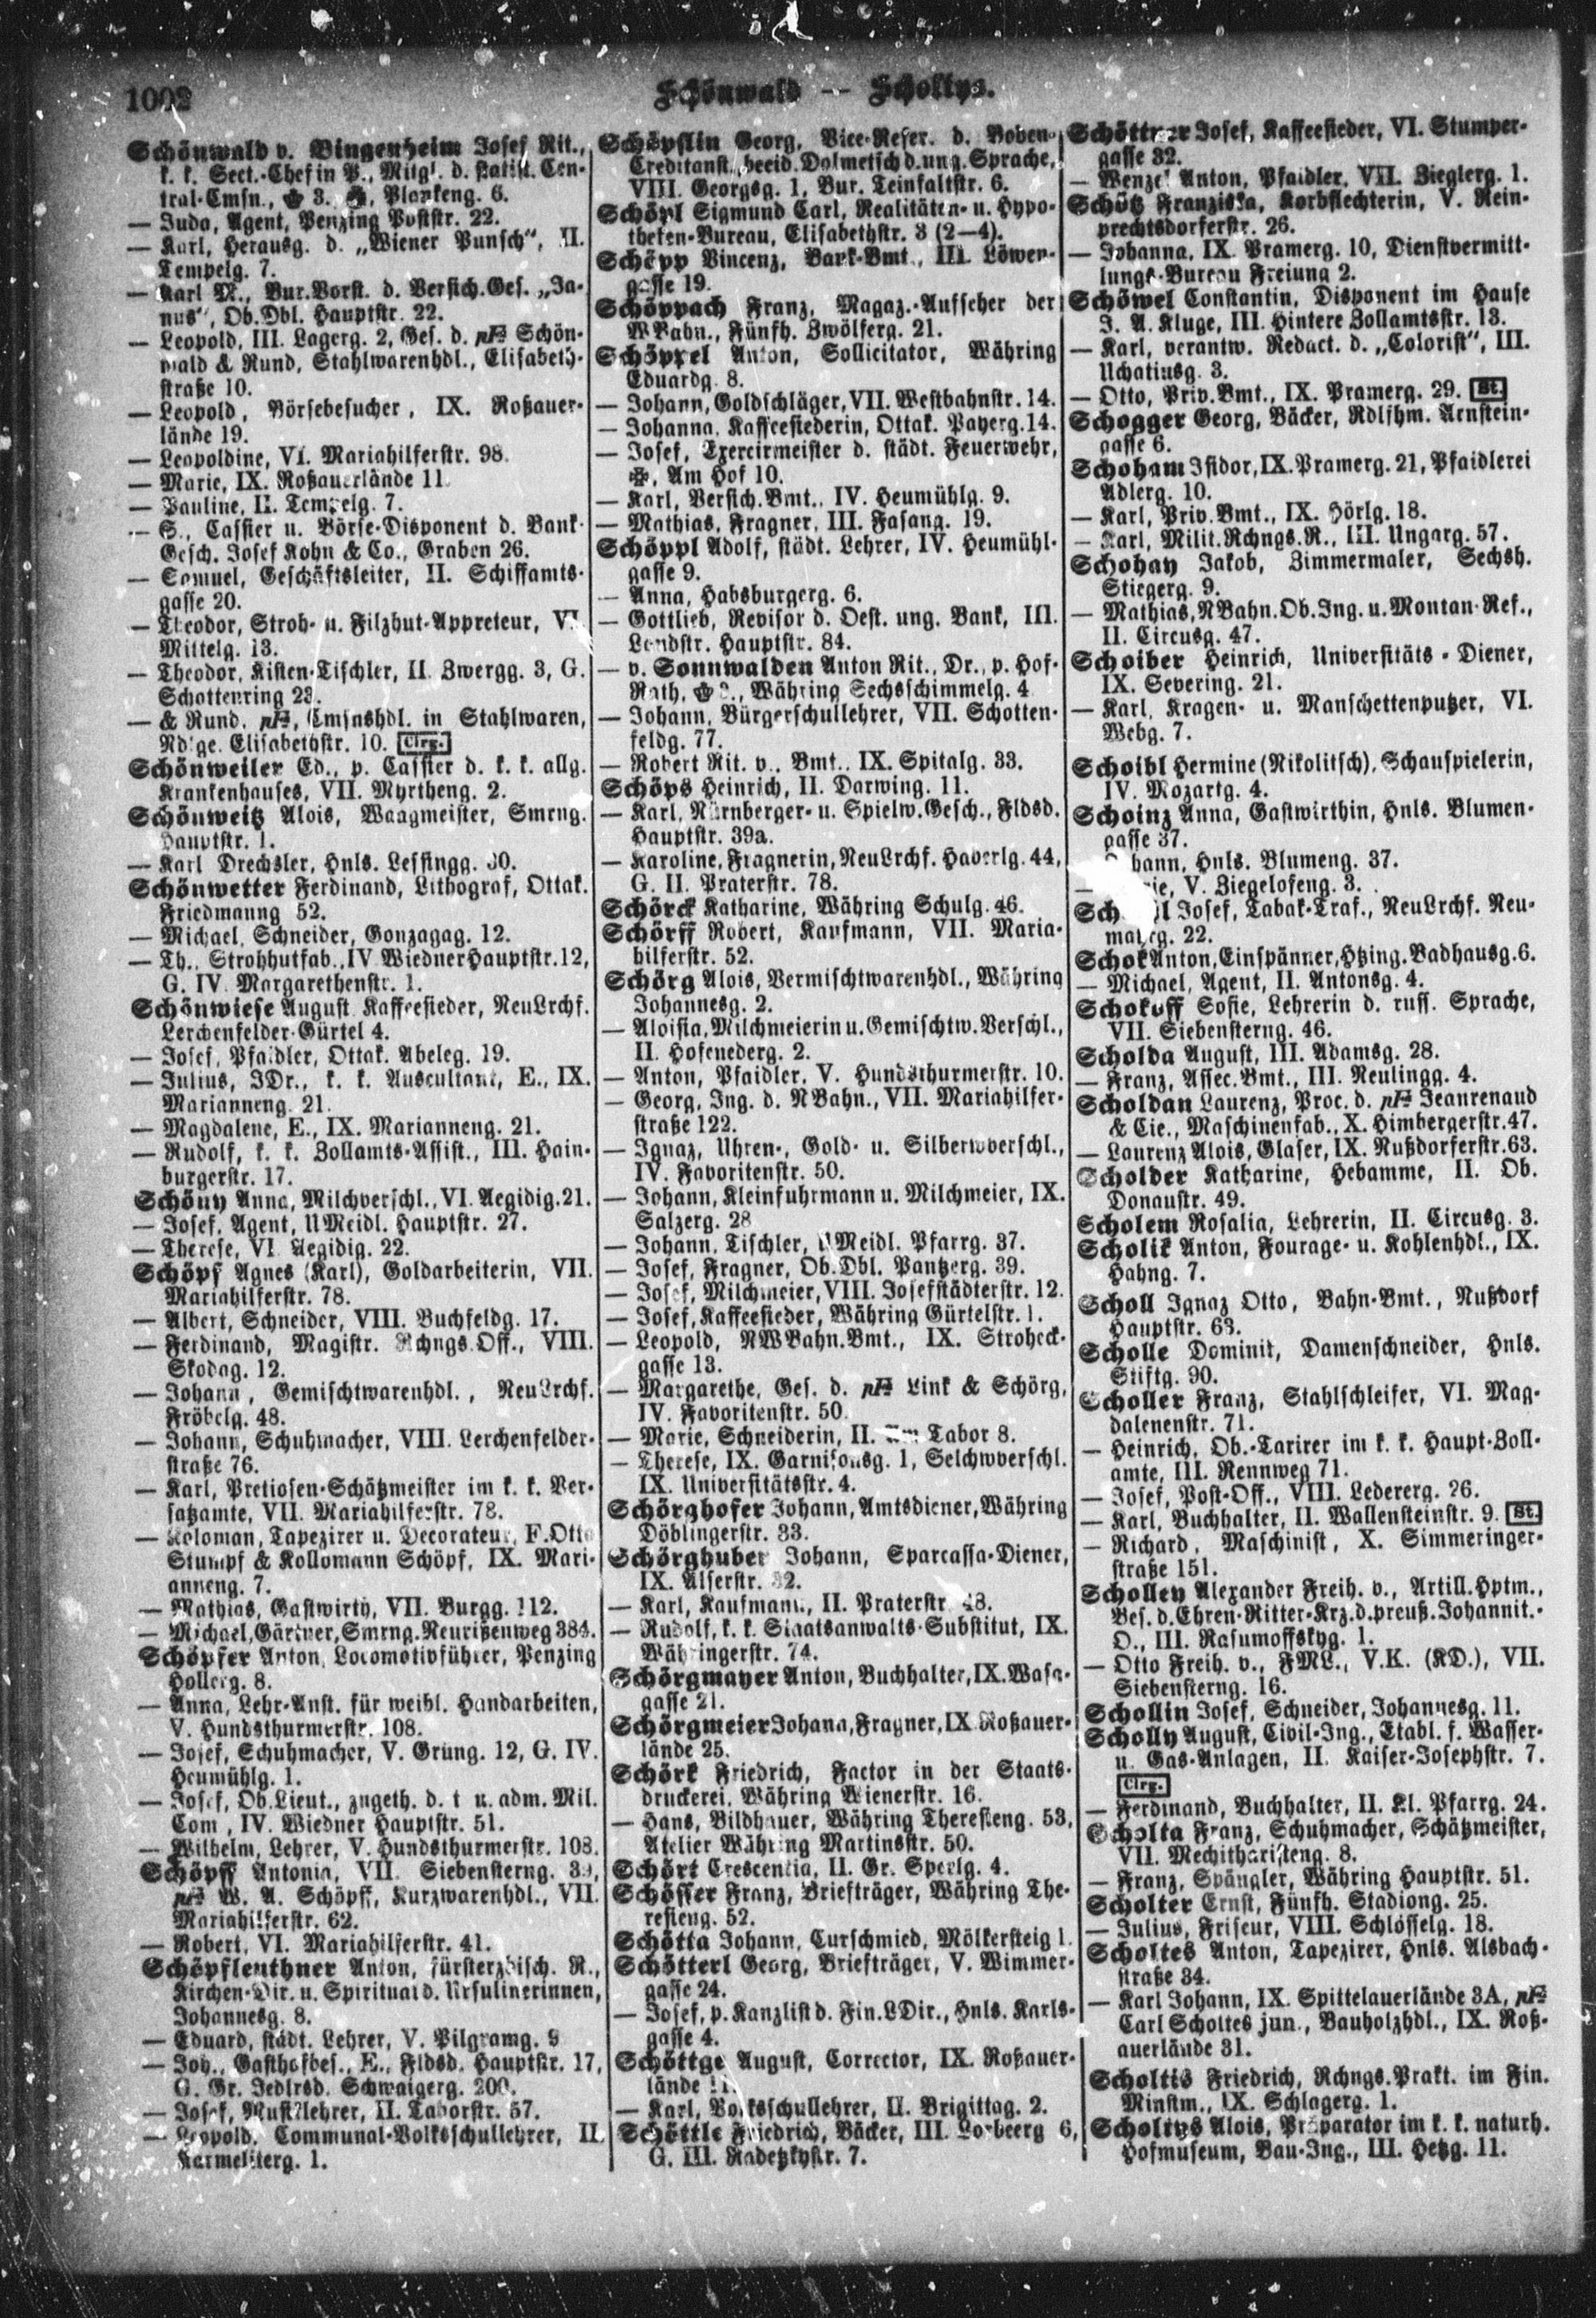 1002
Schönwald -- Scholtys.
Schönwald v. Bingenheim Josef Rit.,
k. k. Sect.-Chef in P., Mitgl. d. statist. Cen-
tral-Cmsn., 3. Plankeng. 6.
— Juda, Agent, Penzing Poststr. 22.
— Karl, Herausg. d. „Wiener Punsch“, II.
Tempelg. 7.
— Karl M., Bur.Vorst. d. Versich.Ges. „Ja-
nus“, Ob.Dbl. Hauptstr. 22.
— Leopold, III. Lagerg. 2, Ges. d. pF Schön-
wald & Rund, Stahlwarenhdl., Elisabeth-
straße 10.
— Leopold, Börsebesucher, IX. Roßauer-
lände 19.
— Leopoldine, VI. Mariahilferstr. 98.
— Marie, IX. Roßauerlände 11.
— Pauline, II. Tempelg. 7.
— S., Cassier u. Börse-Disponent d. Bank-
Gesch. Josef Kohn & Co., Graben 26.
— Samuel, Geschäftsleiter, II. Schiffamts-
gasse 20.
— Theodor, Stroh- u. Filzhut-Appreteur, VI.
Mittelg. 13.
— Theodor, Kisten-Tischler, II. Zwergg. 3, G.
Schottenring 23.
— & Rund, pF, Cmsnshdl. in Stahlwaren,
Ndlge. Elisabethstr. 10. Clrg.
Schönweiler Ed., p. Cassier d. k. k. allg.
Krankenhauses, VII. Myrtheng. 2.
Schönweitz Alois, Waagmeister, Smrng.
Hauptstr. 1.
— Karl Drechsler, Hnls. Lessingg. 30.
Schönwetter Ferdinand, Lithograf, Ottak.
Friedmanng 52.
— Michael, Schneider, Gonzagag. 12.
— Th., Strohhutfab., IV Wiedner Hauptstr. 12,
G. IV. Margarethenstr. 1.
Schönwiese August Kaffeesieder, NeuLrchf.
Lerchenfelder-Gürtel 4.
— Josef, Pfaidler, Ottak. Abeleg. 19.
— Julius, JDr., k. k. Auscultant, E., IX.
Marianneng. 21.
— Magdalene, E., IX. Marianneng. 21.
— Rudolf, k. k. Zollamts-Assist., III. Hain-
burgerstr. 17.
Schöny Anna, Milchverschl., VI. Aegidig. 21.
— Josef, Agent, UMeidl. Hauptstr. 27.
— Therese, VI. Aegidig. 22.
Schöpf Agnes (Karl), Goldarbeiterin, VII.
Mariahilferstr. 78.
— Albert, Schneider, VIII. Buchfeldg. 17.
— Ferdinand, Magistr. Rchngs.Off., VIII.
Skodag. 12.
— Johann, Gemischtwarenhdl., NeuLrchf.
Fröbelg. 48.
— Johann, Schuhmacher, VIII. Lerchenfelder-
straße 76.
— Karl, Pretiosen-Schätzmeister im k. k. Ver-
satzamte, VII. Mariahilferstr. 78.
— Koloman, Tapezirer u. Decorateur, F. Otto
Stumpf & Kollomann Schöpf, IX. Mari-
anneng. 7.
— Mathias, Gastwirth, VII. Burgg. 112.
— Michael, Gärtner, Smrng. Neurißenweg 384.
Schöpfer Anton, Locomotivführer, Penzing
Hollerg. 8.
— Anna, Lehr-Anst. für weibl. Handarbeiten,
V. Hundsthurmerstr. 108.
— Josef, Schuhmacher, V. Grüng. 12, G. IV.
Heumühlg. 1.
— Josef, Ob.Lieut., zugeth. d. t u. adm. Mil.
Com, IV. Wiedner Hauptstr. 51.
— Wilhelm, Lehrer, V. Hundsthurmerstr. 108.
Schöpff Antonia, VII. Siebensterng. 39,
pF W. A. Schöpff, Kurzwarenhdl., VII.
Mariahilferstr. 62.
— Robert, VI. Mariahilferstr. 41.
Schöpfleuthner Anton, fürsterzbisch. R.,
Kirchen-Dir. u. Spiritual d. Ursulinerinnen,
Johannesg. 8.
— Eduard, städt. Lehrer, V. Pilgramg. 9
— Joh., Gasthofbes., E., Fldsd. Hauptstr. 17,
G. Gr. Jedlrsd. Schwaigerg. 200.
— Josef, Musiklehrer, II. Taborstr. 57.
— Leopold, Communal-Volksschullehrer, II.
Karmeliterg. 1.
Schöpflin Georg, Vice-Refer. d. Boden-
Creditanst., beeid. Dolmetsch d. ung. Sprache,
VIII. Georgsg. 1, Bur. Teinfaltstr. 6.
Schöpl Sigmund Carl, Realitäten- u. Hypo-
theken-Bureau, Elisabethstr. 3 (2—4).
Schöpp Vincenz, Bank-Bmt., III. Löwen-
gasse 19.
Schöppach Franz, Magaz.-Aufseher der
WBahn., Fünfh. Zwölferg. 21.
Schöppel Anton, Sollicitator, Währing
Eduardg. 8.
— Johann, Goldschläger, VII. Westbahnstr. 14.
— Johanna, Kaffeesiederin, Ottak. Payerg. 14.
— Josef, Exercirmeister d. städt. Feuerwehr,
Am Hof 10.
— Karl, Versich.Bmt., IV. Heumühlg. 9.
— Mathias, Fragner, III. Fasang. 19.
Schöppl Adolf, städt. Lehrer, IV. Heumühl-
gasse 9.
— Anna, Habsburgerg. 6.
— Gottlieb, Revisor d. Oest. ung. Bank, III.
Landstr. Hauptstr. 84.
— v. Sonnwalden Anton Rit., Dr., p. Hof-
Rath, Währing Sechsschimmelg. 4
— Johann, Bürgerschullehrer, VII. Schotten-
feldg. 77.
— Robert Rit. v., Bmt., IX. Spitalg. 33.
Schöps Heinrich, II. Darwing. 11.
— Karl, Nürnberger- u. Spielw.Gesch., Fldsd.
Hauptstr. 39a.
— Karoline, Fragnerin, NeuLrchf. Haberlg. 44,
G. II. Praterstr. 78.
Schörck Katharine, Währing Schulg. 46.
Schörff Robert, Kaufmann, VII. Maria-
hilferstr. 52.
Schörg Alois, Vermischtwarenhdl., Währing
Johannesg. 2.
— Aloisia, Milchmeierin u. Gemischtw.Verschl.,
II. Hofenederg. 2.
— Anton, Pfaidler, V. Hundsthurmerstr. 10.
— Georg, Ing. d. NBahn., VII. Mariahilfer-
straße 122.
— Ignaz, Uhren-, Gold- u. Silberwverschl.,
IV. Favoritenstr. 50.
— Johann, Kleinfuhrmann u. Milchmeier, IX.
Salzerg. 28
— Johann, Tischler, UMeidl. Pfarrg. 37.
— Josef, Fragner, Ob.Dbl. Pantzerg. 39.
— Josef, Milchmeier, VIII. Josefstädterstr. 12.
— Josef, Kaffeesieder, Währing Gürtelstr. 1.
— Leopold, NWBahn.Bmt., IX. Stroheck-
gasse 13.
— Margarethe, Ges. d. pF Link & Schörg,
IV. Favoritenstr. 50.
— Marie, Schneiderin, II. Am Tabor 8.
— Therese, IX. Garnisonsg. 1, Selchwverschl.
IX. Universitätsstr. 4.
Schörghofer Johann, Amtsdiener, Währing
Döblingerstr. 33.
Schörghuber Johann, Sparcassa-Diener,
IX. Alserstr. 32.
— Karl, Kaufmann, II. Praterstr 48.
— Rudolf, k. k. Staatsanwalts-Substitut, IX.
Währingerstr. 74.
Schörgmayer Anton, Buchhalter, IX. Wasa-
gasse 21.
Schörgmeier Johana, Fragner, IX Roßauer-
lände 25.
Schörk Friedrich, Factor in der Staats-
druckerei, Währing Wienerstr. 16.
— Hans, Bildhauer, Währing Theresieng. 53,
Atelier Währing Martinsstr. 50.
Schört Crescentia, II. Gr. Sperlg. 4.
Schösser Franz, Briefträger, Währing The-
resieng. 52.
Schötta Johann, Curschmied, Mölkersteig 1.
Schötterl Georg, Briefträger, V. Wimmer-
gasse 24.
— Josef, p. Kanzlist d. Fin.LDir., Hnls. Karls-
gasse 4.
Schöttge August, Corrector, IX. Roßauer-
lände 11.
— Karl, Volksschullehrer, II. Brigittag. 2.
Schöttle Friedrich, Bäcker, III. Lorbeerg 6,
G. III. Radetzkystr. 7.
Schöttner Josef, Kaffeesieder, VI. Stumper-
gasse 32.
— Wenzel Anton, Pfaidler, VII. Zieglerg. 1.
Schötz Franziska, Korbflechterin, V. Rein-
prechtsdorferstr. 26.
— Johanna, IX. Pramerg. 10, Dienstvermitt-
lungs-Bureau Freiung 2.
Schöwel Constantin, Disponent im Hause
J. A. Kluge, III. Hintere Zollamtsstr. 13.
— Karl, verantw. Redact. d. „Colorist“, III.
Uchatiusg. 3.
— Otto, Priv.Bmt., IX. Pramerg. 29. St.
Schogger Georg, Bäcker, Rdlfhm. Arnstein-
gasse 6.
Schoham Isidor, IX. Pramerg. 21, Pfaidlerei
Adlerg. 10.
— Karl, Priv.Bmt., IX. Hörlg. 18.
— Karl, Milit.Rchngs.R., III. Ungarg. 57.
Schohay Jakob, Zimmermaler, Sechsh.
Stiegerg. 9.
— Mathias, NBahn.Ob.Ing. u. Montan-Ref.,
II. Circusg. 47.
Schoiber Heinrich, Universitäts-Diener,
IX. Severing. 21.
— Karl, Kragen- u. Manschettenputzer, VI.
Webg. 7.
Schoibl Hermine (Nikolitsch), Schauspielerin,
IV. Mozartg. 4.
Schoinz Anna, Gastwirthin, Hnls. Blumen-
gasse 37.
hann, Hnls. Blumeng. 37.
— V. Ziegelofeng. 3.
Josef, Tabak-Traf., NeuLrchf. Neu-
22.
Schok Anton, Einspänner, Htzing. Badhausg. 6.
— Michael, Agent, II. Antonsg. 4.
Schokoff Sofie, Lehrerin d. russ. Sprache,
VII. Siebensterng. 46.
Scholda August, III. Adamsg. 28.
— Franz, Assec.Bmt., III. Neulingg. 4.
Scholdan Laurenz, Proc. d. pF Jeanrenaud
& Cie., Maschinenfab., X. Himbergerstr. 47.
— Laurenz Alois, Glaser, IX. Nußdorferstr. 63.
Scholder Katharine, Hebamme, II. Ob.
Donaustr. 49.
Scholem Rosalia, Lehrerin, II. Circusg. 3.
Scholik Anton, Fourage- u. Kohlenhdl., IX.
Hahng. 7.
Scholl Ignaz Otto, Bahn-Bmt., Nußdorf
Hauptstr. 63.
Scholle Dominik, Damenschneider, Hnls.
Stiftg. 90.
Scholler Franz, Stahlschleifer, VI. Mag-
dalenenstr. 71.
— Heinrich, Ob.-Tarirer im k. k. Haupt-Zoll-
amte, III. Rennweg 71.
— Josef, Post-Off., VIII. Ledererg. 26.
— Karl, Buchhalter, II. Wallensteinstr. 9. St.
— Richard, Maschinist, X. Simmeringer-
straße 151.
Scholley Alexander Freih. v., Artill.Hptm.,
Bes. d. Ehren-Ritter-Krz. d. preuß. Johannit.-
O., III. Rasumoffskyg. 1.
— Otto Freih. v., FML., V.K. (KD.), VII.
Siebensterng. 16.
Schollin Josef, Schneider, Johannesg. 11.
Scholly August, Civil-Ing., Etabl. f. Wasser-
u. Gas-Anlagen, II. Kaiser-Josephstr. 7.
Clrg.
— Ferdinand, Buchhalter, II. Kl. Pfarrg. 24.
Scholta Franz, Schuhmacher, Schätzmeister,
VII. Mechitharisteng. 8.
— Franz, Spängler, Währing Hauptstr. 51.
Scholter Ernst, Fünfh. Stadiong. 25.
— Julius, Friseur, VIII. Schlösselg. 18.
Scholtes Anton, Tapezirer, Hnls. Alsbach-
straße 34.
— Karl Johann, IX. Spittelauerlände 3A, pF
Carl Scholtes jun., Bauholzhdl., IX. Roß-
auerlände 31.
Scholtis Friedrich, Rchngs.Prakt. im Fin.
Minstm., IX. Schlagerg. 1.
Scholtys Alois, Präparator im k. k. naturh.
Hofmuseum, Bau-Ing., III. Hetzg. 11.